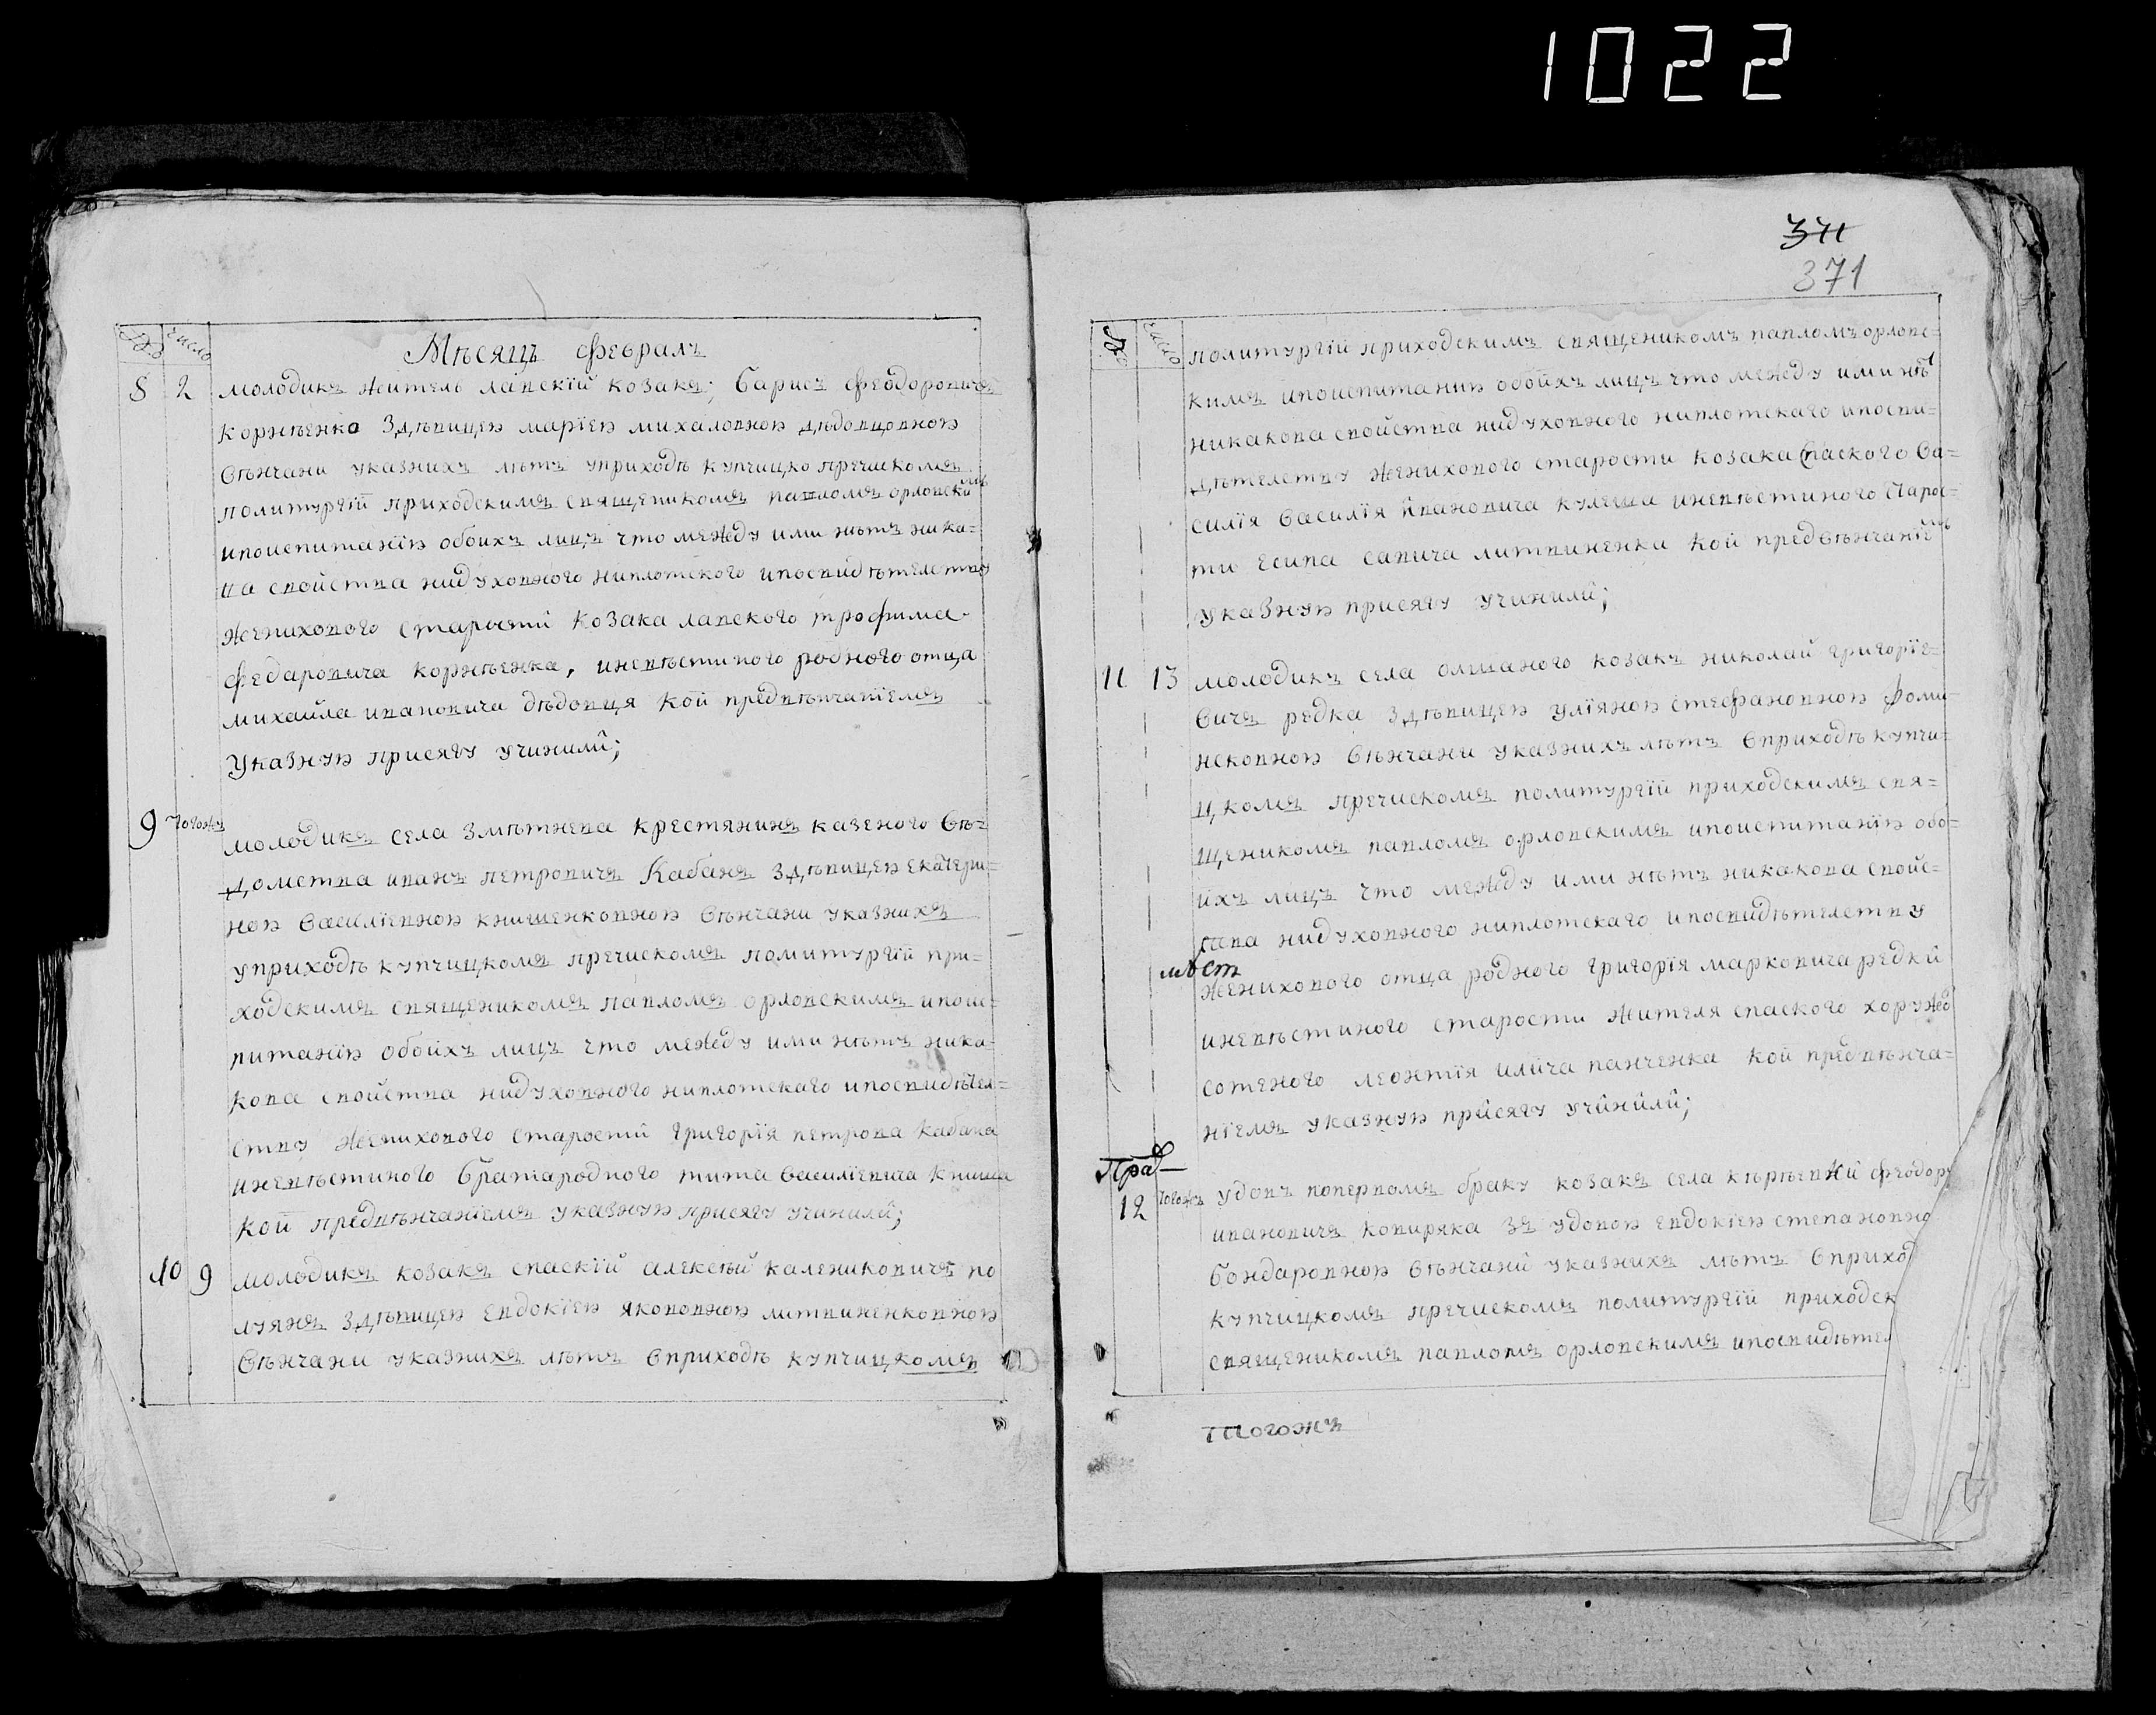 1022
371
371
Число
Мѣсяцъ февралъ
8 2 молодикъ житель лавскїй козакъ; барисъ феодоровичъ
корнѣенко здѣвицею марїею михаловною дѣдовцовною
вѣнчани указнихъ лѣтъ уприходѣ купчицко пречискомъ
политургїй приходскимъ священикомъ павломъ орловскимъ
ипоиспитанїю обоихъ лицъ что между ими нѣтъ ника-
ва свойства нидуховного ниплотского ипосвидѣтелству
женихового старостй козака лавского трофима
федаровича корнѣенка, иневѣстиного родного отца
михайла ивановича дѣдовця кой предвѣнчанїемъ
указную присягу учинилй;
9 тогожъ молодикъ села змѣтнева крестянинъ казеного вѣ-
домства иванъ петровичъ Кабанъ здѣвицею екатери-
ною василїевною книшенковною вѣнчани указнихъ
уприходѣ купчицкомъ пречискомъ политургїй при-
ходскимъ священикомъ павломъ орловскимъ ипоис-
питанїю обойхъ лицъ что между ими нѣтъ ника-
кова свойства нидуховного ниплотскаго ипосвидѣтел-
ству женихового старостй григорїя петрова кабана
иневѣстиного братародного тита василїевича книша
кой предвѣнчанїемъ указную присягу учинилй;
10 9 молодикъ козакъ спаскїй алексѣй калениковичъ по
луянъ здѣвицею евдокїею якововною литвиненковною
вѣнчани указнихъ лѣтъ вприходѣ купчицкомъ
политургїй приходскимъ священикомъ павломъ орловс-
кимъ ипоиспитанию обойхъ лицъ что между ими нѣтъ
никакова свойства нидуховного ниплотскаго ипосви-
дѣтелству женихового старости козака спаского ва-
силїя василїя йвановича кулеша иневѣстиного старос-
ти есипа савича литвиненка кой предвѣнчанїемъ
указную присягу учинилй;
11 13 молодикъ села олшаного козакъ николай григорїе-
вичъ редка здѣвицею улїяною стефановною фоми-
нсковною вѣнчани указнихъ лѣтъ вприходѣ купчи-
цкомъ пречискомъ политургїй приходскимъ свя-
щеникомъ павломъ орловскимъ ипоиспитанїю обо-
йхъ лицъ что между ими нѣтъ никакова свойс-
тва нидуховного ниплотскаго ипосвидѣтелству
женихового отца родного григорїя марковича редки
иневѣстиного старости жителя спаского хоружо
сотеного леонтїя илича панченка кой предвѣнча-
нїемъ указную прйсягу учйнйлй;
12 тогожъ удовъ поперvomъ браку козакъ села кѣрѣевки феодоръ
ивановичъ ковиряка зъ удовою евдокїею степановно
бондаровною вѣнчанй указнихъ лѣтъ вприхо
купчицкомъ пречискомъ политургїй приходск
священикомъ павломъ орловскимъ ипосвидѣтел
тогожъ